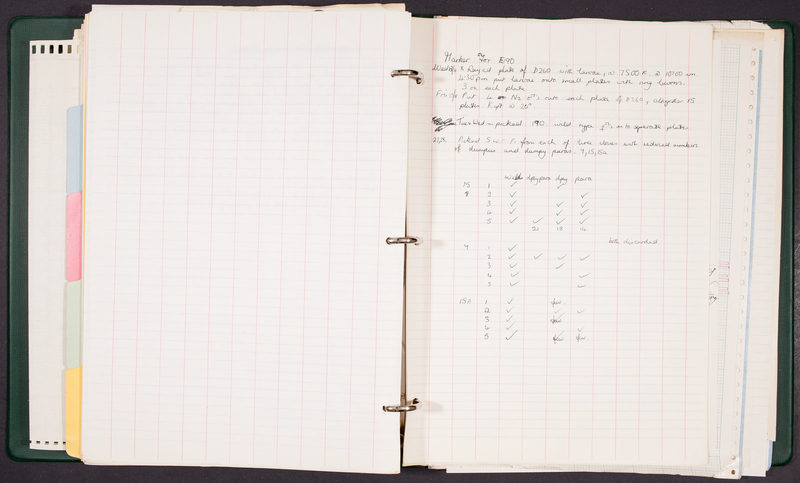 Marker for E90
X Rayed plate of D260 with larvae, @ 7500 R. @ 10.00 am
4.30 pm put larvae onto small plates with ring worms.
3 on each plate
Put 4 N2 ♂s onto each plate of D260, altogether 15
plates. Kept @ 20°.
Tues Wed - picked 190 wild type ⚥s onto separate plates.
Picked 5 w.t. F1 from each of three clones with reduced numbers
of dumpies and dumpy paras. 9, 15, 15a
wild dpy para dpy para
15 1 ✓ ✓
8 2 ✓ ✓
3 ✓ ✓ ✓
4 ✓ ✓ ✓
5 ✓ ✓ ✓ ✓
21 18 14
both discarded
9 1 ✓
2 ✓ ✓ ✓ ✓
3 ✓ ✓
4 ✓ ✓
5 ✓ ✓
15A 1 ✓ few
2 ✓ ✓ ✓
3 ✓ few
4 ✓ ✓
5 ✓ few few